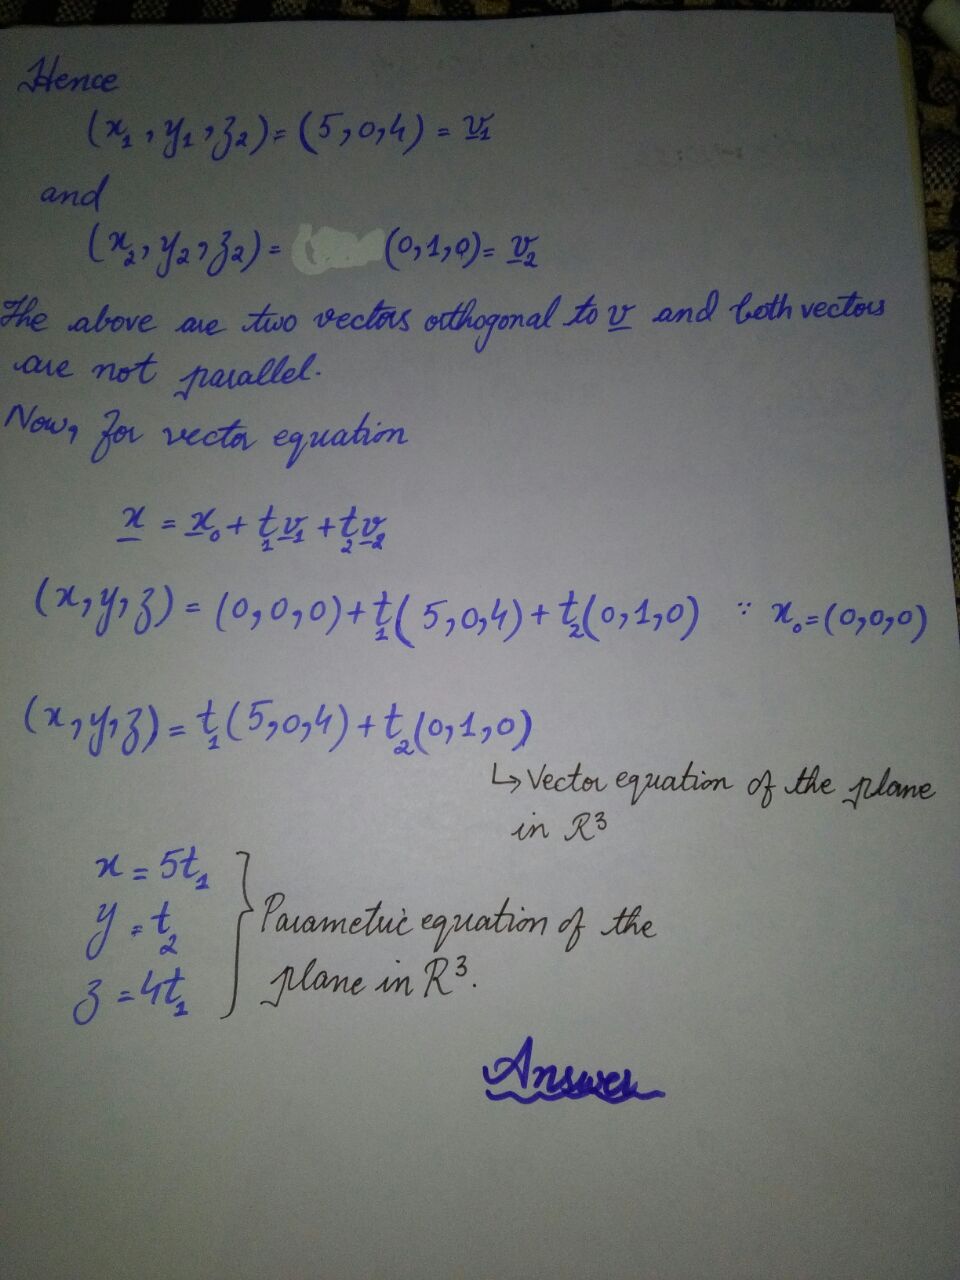 Hence
(x₁, y₁, z₂) = (5,0,4) = v₁
and
(x₂, y₂, z₂) = (0,1,0) = v₂
The above are two vectors orthogonal to v and both vectors
are not parallel.
Now, for vector equation
x = x₀ + t₁v₁ + t₂v₂
(x,y,z) = (0,0,0) + t₁(5,0,4) + t₂(0,1,0) ∵ x₀ = (0,0,0)
(x,y,z) = t₁(5,0,4) + t₂(0,1,0)
↳ Vector equation of the plane
in R³
x = 5t₁
y = t₂
z = 4t₁
} Parametric equation of the
plane in R³.
Answer